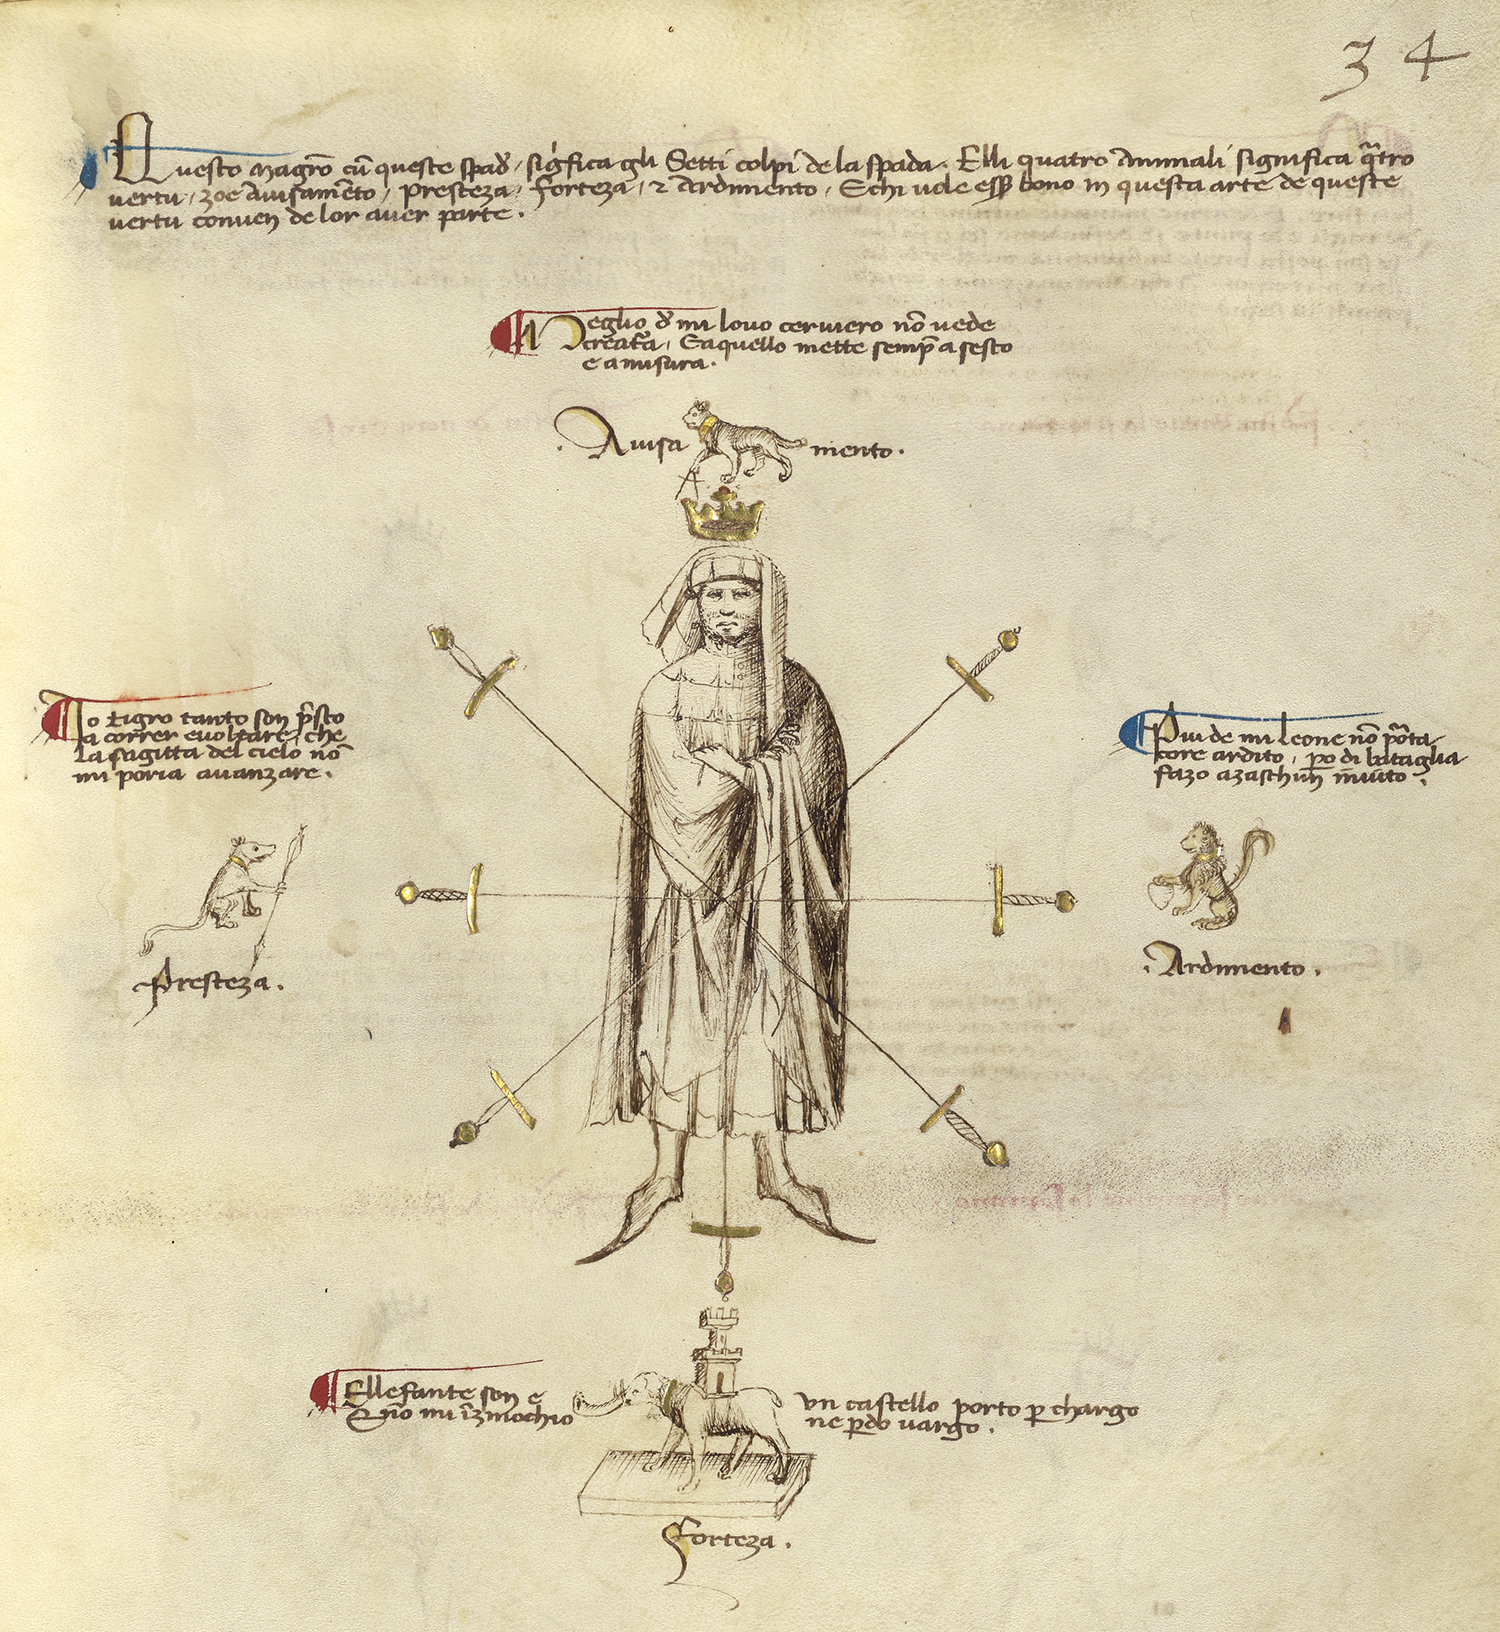 34
Questo Magrō cū queste spad' sigĩfica gli Setti colpi de la spada. Elli quatro Animali significa q̃tro
vertu, zoe avisamēto, presteza, forteza, ⁊ Ardimento, E chi vole esser bono in questa arte de queste
vertu conven de lor aver parte.
Meglio d' mi lovo cerviero nō vede
creatũa, E aquello mette semp̄ a sesto
e a misura.
. Avisamento .
Io tigro tanto son p̃sto
a correr e voltare, che
la sagitta del cielo nō
mi poria avanzare .
Piu de mi leone nō p̃ota
core ardito, po di bataglia
fazo a zaschun īnvito .
Presteza .
. Ardimento .
Ellefante son e un castello porto p chargo
E nō mi īzinochio ne pdo vargo .
Forteza .